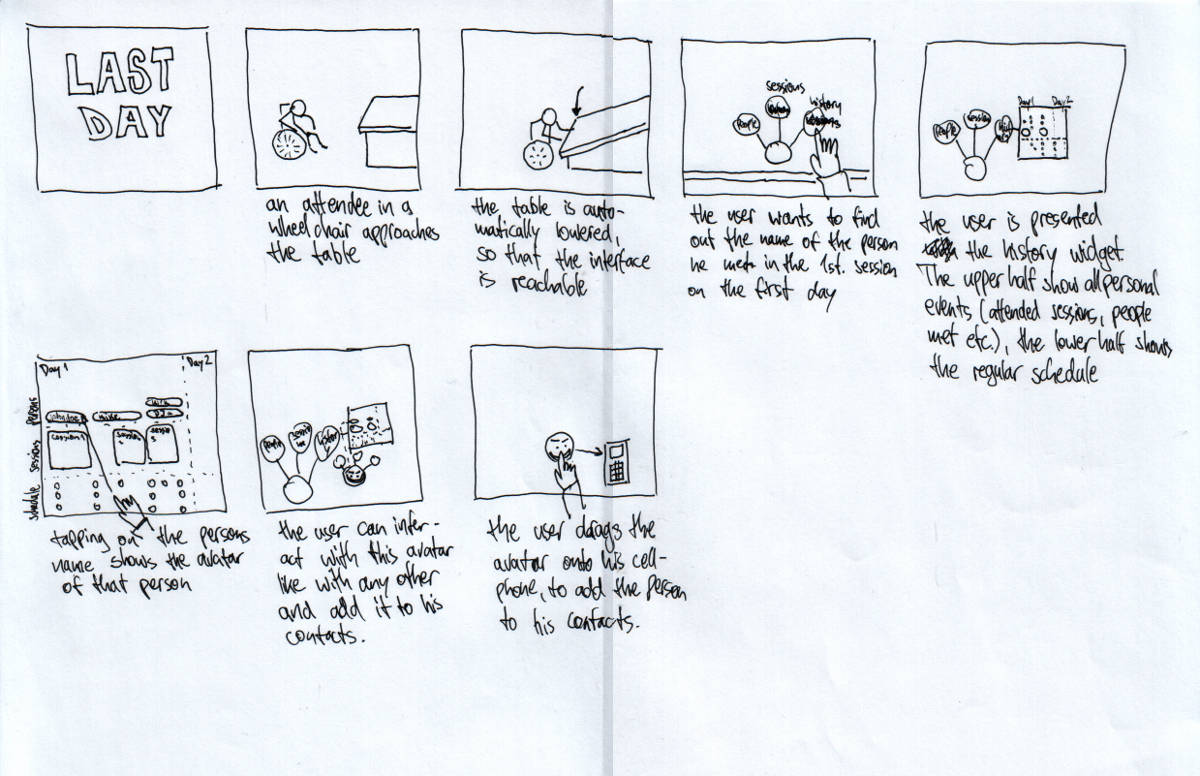 LAST
DAY
an attendee in a
wheelchair approaches
the table
the table is auto-
matically lowered,
so that the interface
is reachable
sessions
history
People
the user wants to find
out the name of the person
he met in the 1st. session
on the first day
Day 1 Day 2
People
session
the user is presented
the history widget.
The upper half show all personal
events (attended sessions, people
met etc.), the lower half shows
the regular schedule
Day 1 Day 2
persons
sessions
schedule
tapping on the persons
name shows the avatar
of that person
People
the user can inter-
act with this avatar
like with any other
and add it to his
contacts.
the user drags the
avatar onto his cell-
phone, to add the person
to his contacts.